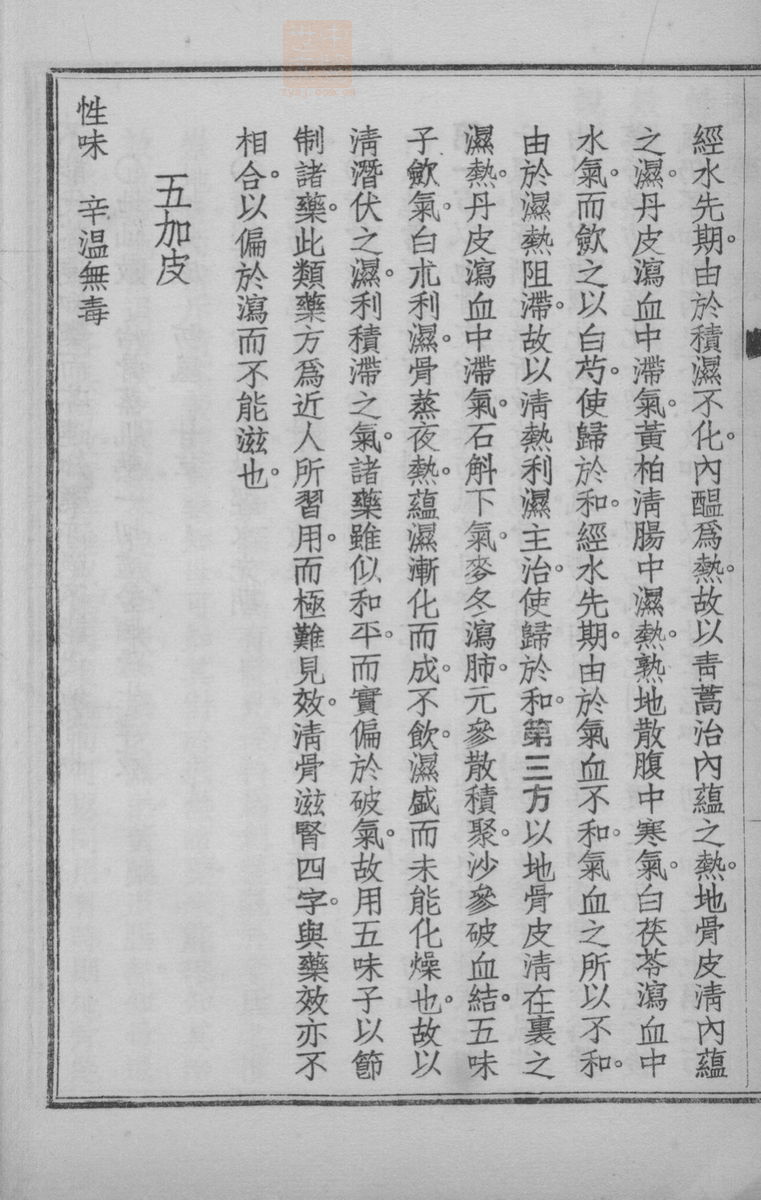 經水先期。由於積濕不化。內醞爲熱。故以靑蒿治內蘊之熱。地骨皮淸內蘊
之濕。丹皮瀉血中滯氣。黃柏淸腸中濕熱。熟地散腹中寒氣。白茯苓瀉血中
水氣。而歛之以白芍。使歸於和。經水先期。由於氣血不和。氣血之所以不和。
由於濕熱阻滯。故以淸熱利濕主治。使歸於和。第三方以地骨皮淸在裏之
濕熱。丹皮瀉血中滯氣。石斛下氣。麥冬瀉肺。元參散積聚。沙參破血結。五味
子歛氣。白朮利濕。骨蒸夜熱。蘊濕漸化而成。不飲。濕盛而未能化燥也。故以
淸潛伏之濕。利積滯之氣。諸藥雖似和平。而實偏於破氣。故用五味子以節
制諸藥。此類藥方爲近人所習用。而極難見效。淸骨滋腎四字。與藥效亦不
相合。以偏於瀉而不能滋也。
五加皮
性味 辛温無毒